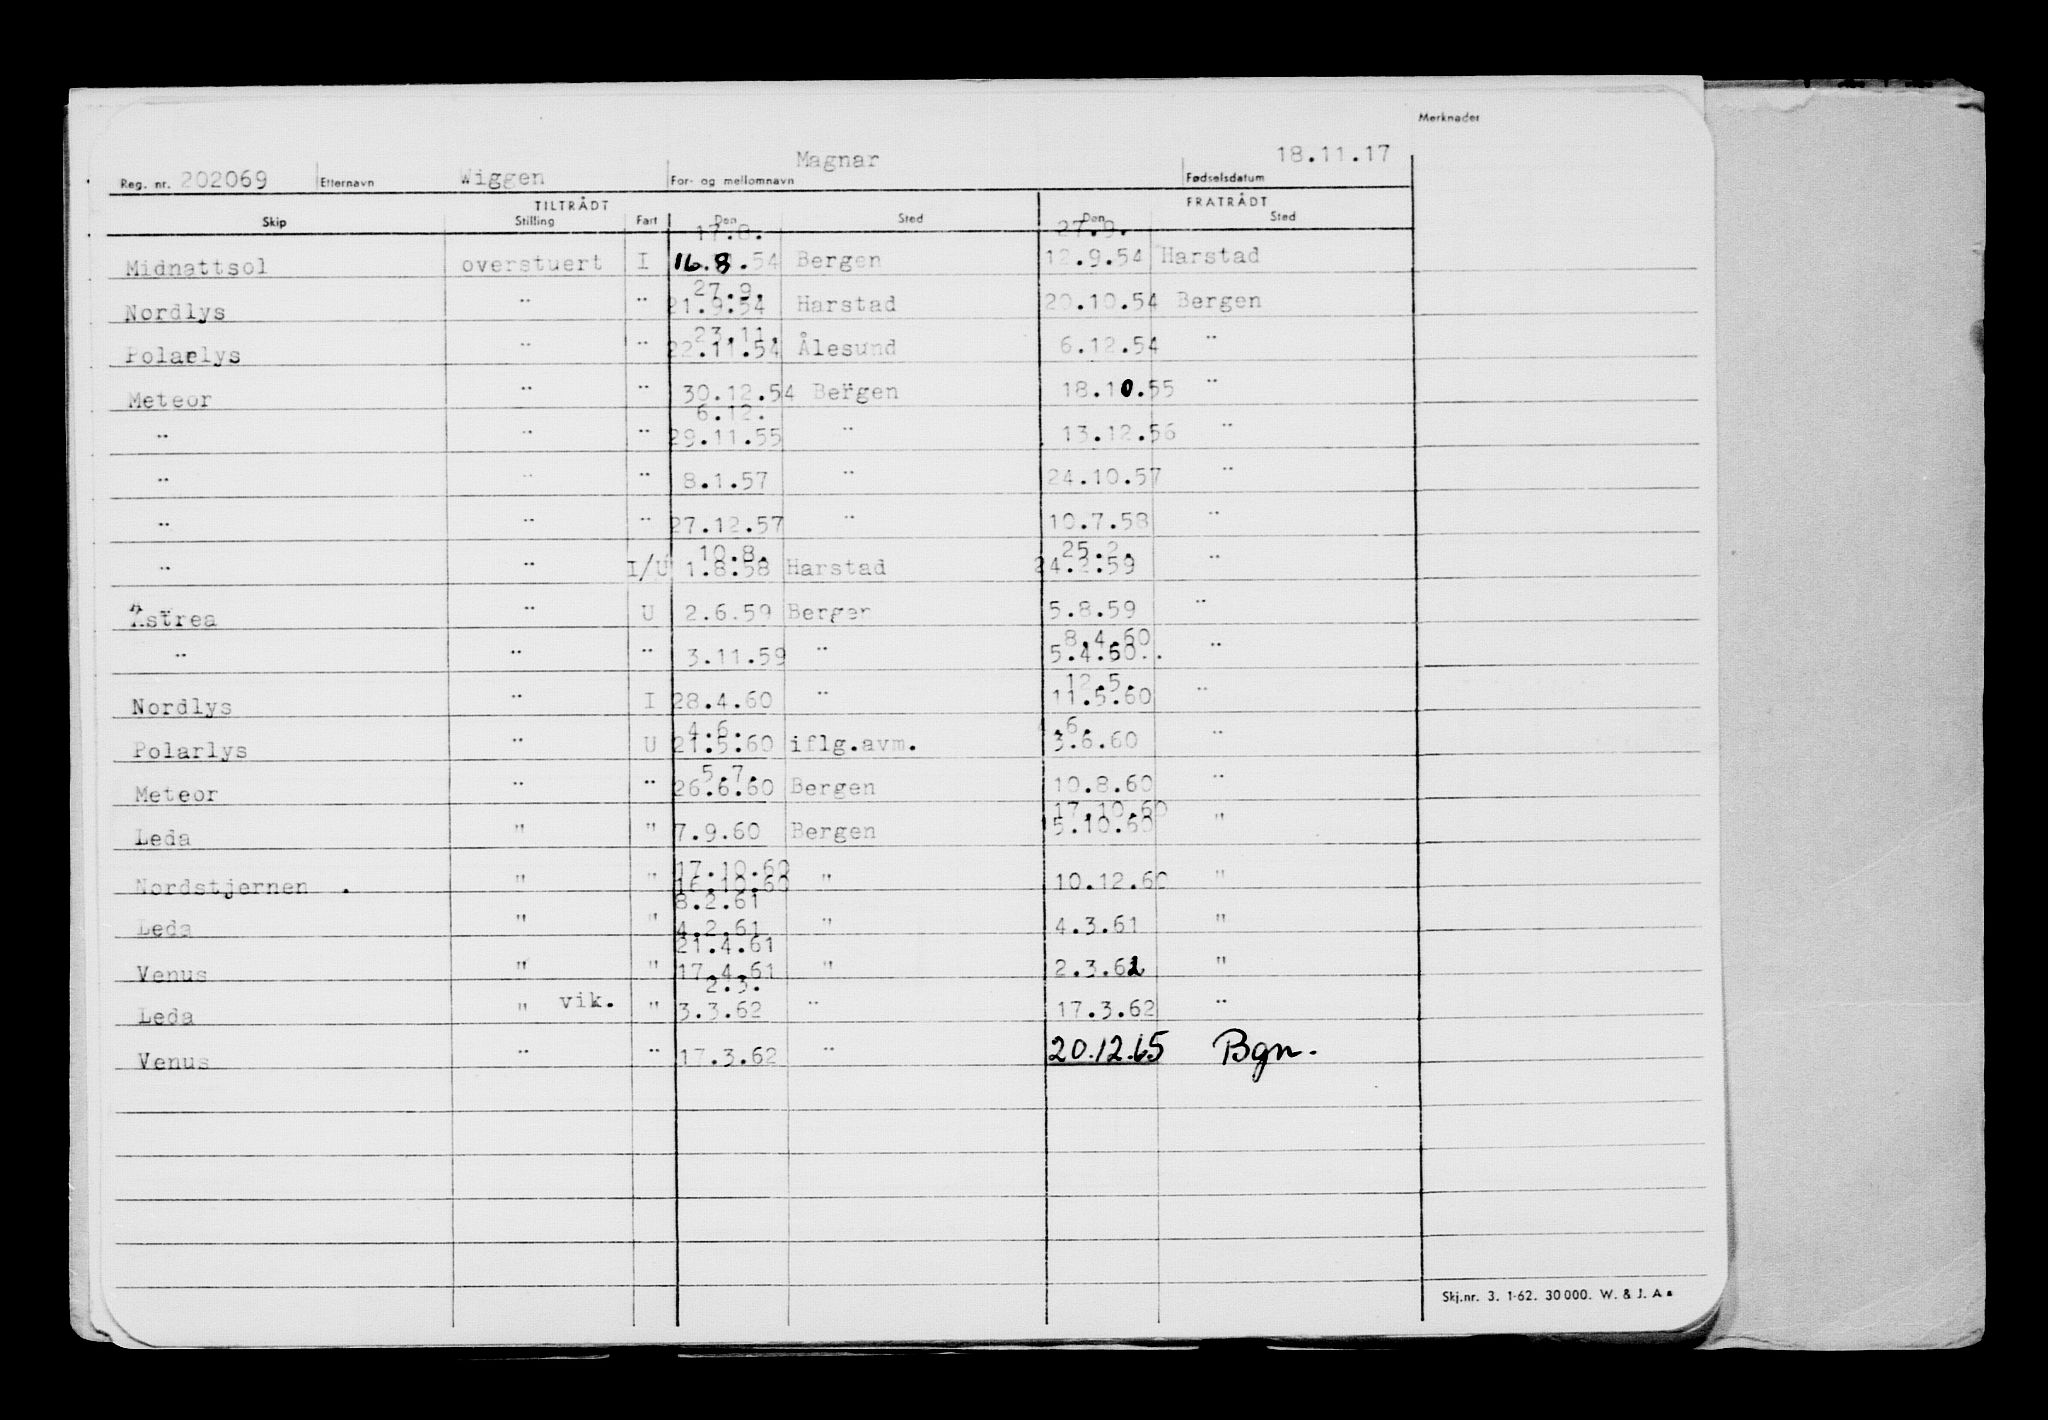 Merknader
Reg. nr. 202069 Etternavn Wiggen For- og mellomnavn Magnar Fødselsdatum 18.11.17
TILTRÅDT FRATRÅDT
Skip Stilling Fart Den Sted Den Sted
17.8. 27.9.
Midnattsol overstuert I 16.8.54 Bergen 12.9.54 Harstad
27.9.
Nordlys " " 21.9.54 Harstad 20.10.54 Bergen
23.11.
Polarlys " " 22.11.54 Ålesund 6.12.54 "
Meteor " " 30.12.54 Bergen 18.10.55 "
6.12.
" " " 29.11.55 " 13.12.56 "
" " " 8.1.57 " 24.10.57 "
" " " 27.12.57 " 10.7.58 "
10.8. 25.2.
" " I/U 1.8.58 Harstad 24.2.59 "
Astrea " U 2.6.59 Bergen 5.8.59 "
8.4.60
" " " 3.11.59 " 5.4.60.. "
12.5.
Nordlys " I 28.4.60 " 11.5.60 "
4.6. 4.6.
Polarlys " U 21.5.60 iflg.avm. 3.6.60 "
5.7.
Meteor " " 26.6.60 Bergen 10.8.60 "
17.10.60
Leda " " 7.9.60 Bergen 15.10.60 "
17.10.60
Nordstjernen . " " 16.10.60 " 10.12.60 "
8.2.61
Leda " " 4.2.61 " 4.3.61 "
21.4.61
Venus " " 17.4.61 " 2.3.62 "
2.3.
Leda " vik. " 3.3.62 " 17.3.62 "
Venus " " 17.3.62 " 20.12.65 Bgn.
Skj.nr. 3. 1-62. 30 000. W. & J. A